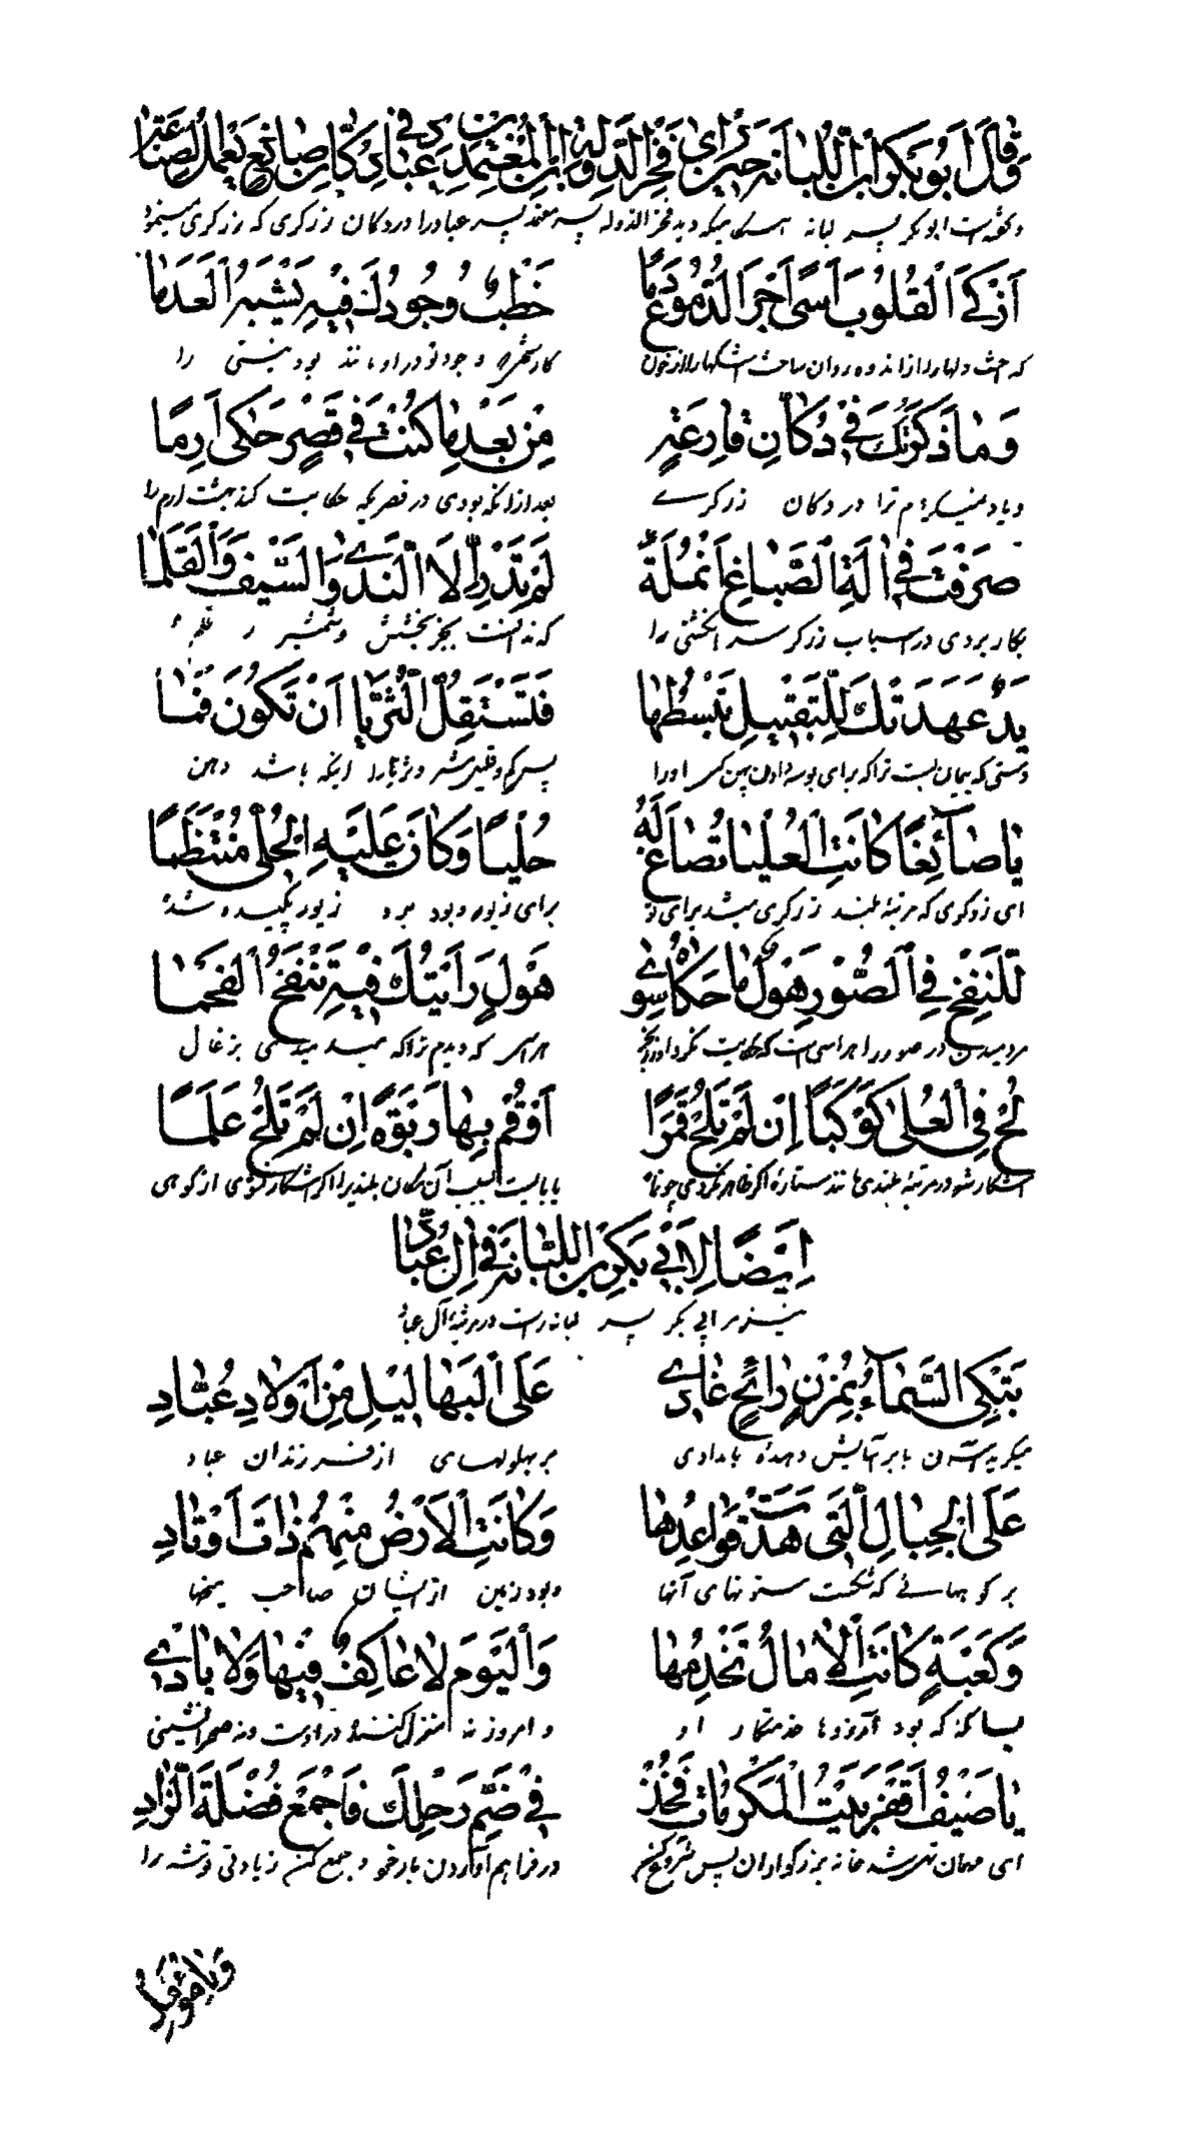 وَقَالَ اَبُو بَكْرِ ابْنُ اللَّبَانَهِ حِيْنَ رَاىٰ فَخْرَ الدَّوْلَةِ ابْنَ الْمُعْتَمِدِ بْنِ عَبَّادٍ فِيْ دُكَّانِ صَائِغٍ يَعْمَلُ الصِّنَاعَةَ
وگفته است ابو بکر پسر لبانه هنگامیکه دید فخر الدوله پسر معتمد پسر عباد را در دکان زرگری که زرگری مینمود
اَذْكَى الْقُلُوْبَ اَسًى اَجْرَى الدُّمُوْعَ دَمَا خَطْبٌ وُجُوْدُكَ فِيْهِ يُشْبِهُ الْعَدَمَا
دلها را از اندوه روان ساخت اشکها را از خون کار وجود تو در او مانند بود نیستی را
وَمَا ذَكَرْتُكَ فِيْ دُكَّانِ قَارِعَةٍ مِنْ بَعْدِ مَا كُنْتَ فِيْ قَصْرٍ حَكَى اِرَمَا
و یاد نمیکردم ترا در دکان زرگرے بعد ازانکه بودی در قصریکه حکایت کند بهشت ارم را
صَرَّفْتَ فِيْ اٰلَةِ الصَّبَاغِ اَنْمُلَةً لَمْ تَدْرِ اِلَّا النَّدٰى وَالسَّيْفَ وَالْقَلَمَا
بکار بردی در اسباب زرگر سر انگشتی را که ندانست بجز بخشش و شمشیر و قلم
يَدٌ عَهِدْتُكَ لِلتَّقْبِيْلِ تَبْسُطُهَا فَتَسْتَقِلُّ الثُّرَيَّا اَنْ تَكُوْنَ فَمَا
دستی که پیمان بست ترا که برای بوسه دادن پهن کنی او را پس کم و قلیل شمرد ثریا را اینکه باشد دهن
يَا صَائِغًا كَانَتِ الْعُلْيَا تُصَاغُ لَهُ حُلْيًا وَكَانَ عَلَيْهِ الْحُلْيُ مُنْتَظَمَا
ای زرگری که مرتبهٔ بلند زرگری میشد برای او برای زیور و بود برو زیور کشیده شده
لِلنَّفْخِ فِي الصُّوْرِ هَوْلٌ مَا حَكَاهُ سِوٰى هَوْلٍ رَاَيْتُكَ فِيْهِ تَنْفَخُ الْفَحَمَا
مر دمیدن در صور را هراسی است که حکایت نکرد او را بجز هراس که دیدم ترا که میدمی بر زغال
لُحْ فِي الْعُلٰى كَوْكَبًا اِنْ لَمْ تَلُحْ قَمَرًا اَوْ قُمْ بِهَا رَبْوَةً اِنْ لَمْ تَلُحْ عَلَمَا
آشکار شو در مرتبهٔ بلندی مانند ستارهٔ اگر ظاهر نگردی چو ماه یا بایست بسبب آن مکان بلند را اگر آشکار نشوی از کوهی
اَيْضًا لِاَبِيْ بَكْرِ بْنِ اللَّبَّانَهِ فِيْ اٰلِ عَبَّادٍ
نیز مر ابی بکر پسر لبانه راست در مرثیهٔ آل عباد
تَبْكِى السَّمَاءُ بِمُزْنٍ رَائِحٍ غَادِىْ عَلَى الْبَهَالِيْلِ مِنْ اَوْلَادِ عَبَّادِ
میگرید آسمان بابر آسایش دهنده بامدادی بر بهلولهای از فرزندان عباد
عَلَى الْجِبَالِ الَّتِىْ هُدَّتْ قَوَاعِدُهَا وَكَانَتِ الْاَرْضُ مِنْهُمْ ذَاتَ اَوْتَادِ
بر کوههائے که شکست ستونهای آنها و بود زمین از ایشان صاحب میخها
وَكَعْبَةٍ كَانَتِ الْاٰمَالُ تَخْدِمُهَا وَالْيَوْمَ لَا عَاكِفٌ فِيْهَا وَلَا بَادِىْ
بسا که بود آرزوها خدمتگار او و امروز نه منزل کنندهٔ در اوست و نه صحرانشینی
يَا ضَيْفُ اَقْفَرَ بَيْتُ الْمَكْرُمَاتِ فَخُذْ فِيْ ضَمِّ رَحْلِكَ فَاجْمَعْ فُضْلَةَ الزَّادِ
ای مهمان تهی شد خانه بزرگواران پس شروع کن در فراهم آوردن بار خود و جمع کن زیادتی توشه را
وَيَا مُؤَمِّلَ